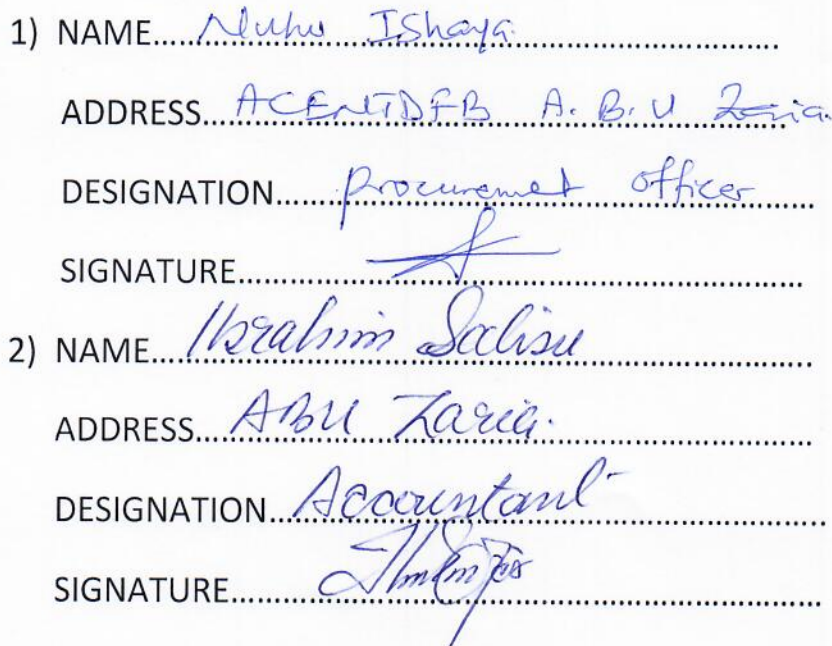 1) NAME.... Nuhu Ishaya.
ADDRESS... ACENTDFB A.B.U Zaria.
DESIGNATION..... Procuremet officer
SIGNATURE.....
2) NAME... Ibrahim Salisu
ADDRESS... ABU Zaria.
DESIGNATION.... Accountant
SIGNATURE.....